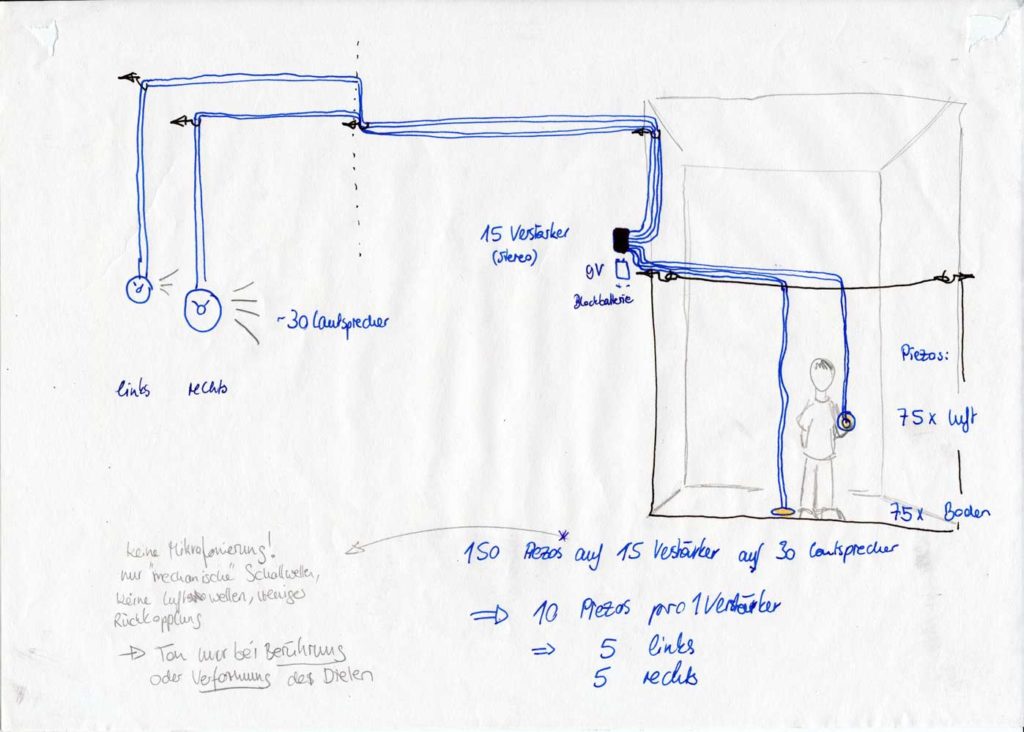 15 Verstärker
(Stereo)
9V
Blockbatterie
~30 Lautsprecher
links rechts
Piezos:
75x Luft
75x Boden
150 Piezos* auf 15 Verstärker auf 30 Lautsprecher
⇒ 10 Piezos pro 1 Verstärker
⇒ 5 links
5 rechts
keine Mikrofonierung!
nur "mechanische" Schallwellen,
keine Luftwellen, weniger
Rückkopplung
→ Ton nur bei Berührung
oder Verformung des Dielen